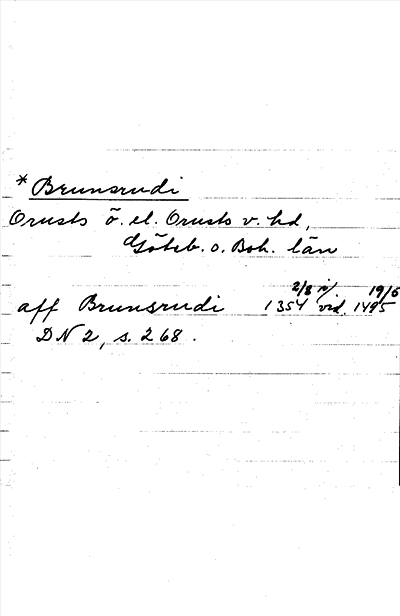 * Brunsrudi
Orusts ö. el. Orusts v. hd,
Göteb. o. Boh. län
aff Brunsrudi 2/8 1354 i vid. 19/6 1495
DN 2, s. 268.